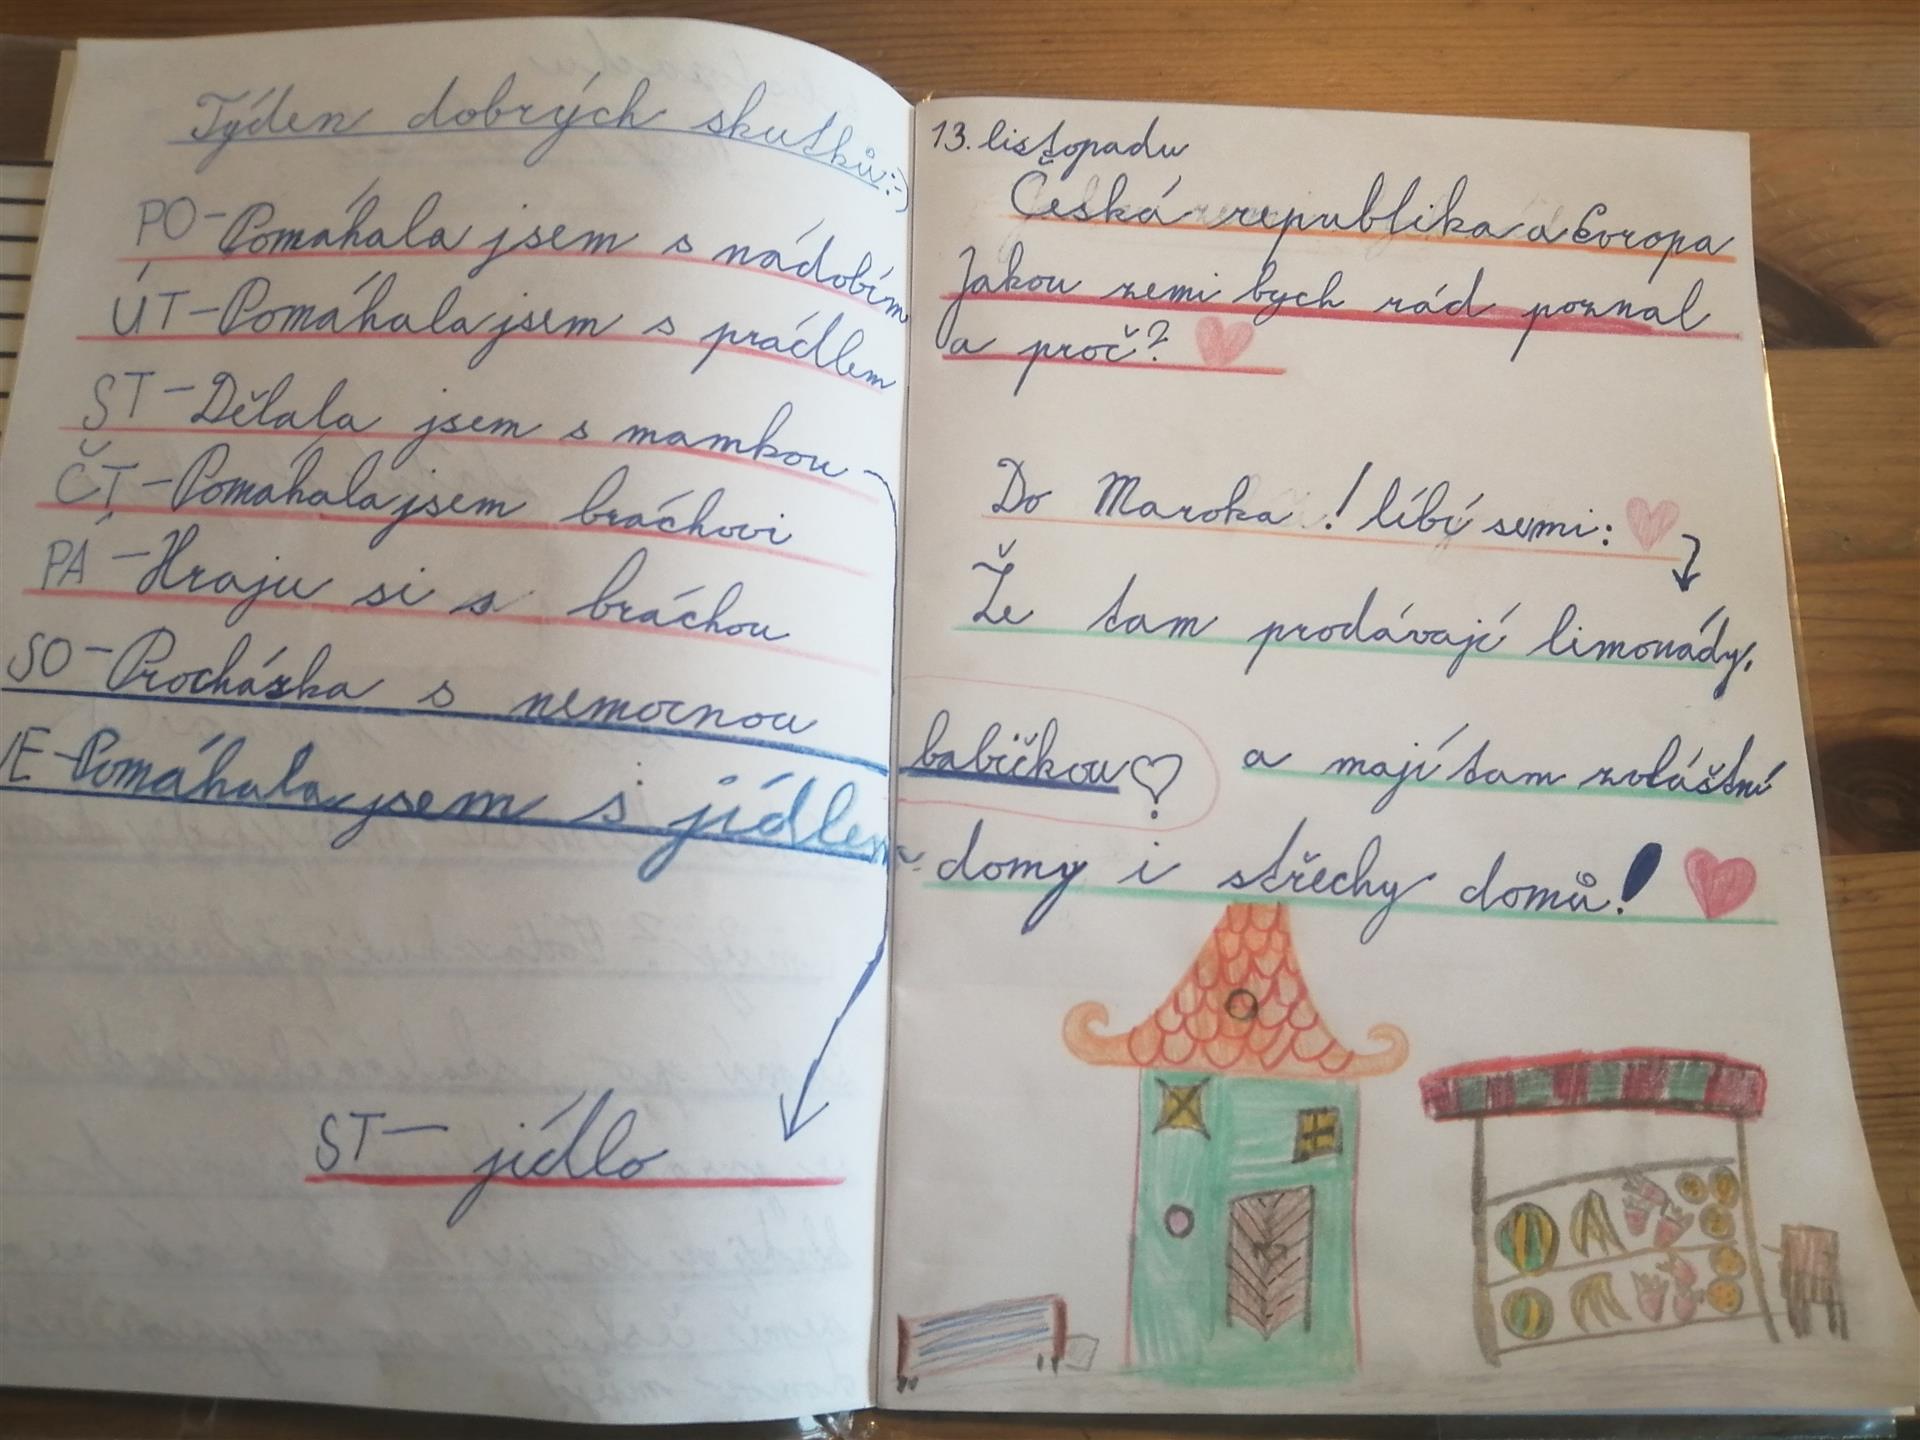 Týden dobrých skutků:-)
PO-Pomáhala jsem s nádobím
ÚT-Pomáhala jsem s prádlem
ST-Dělala jsem s mamkou
ČT-Pomáhala jsem bráchovi
PÁ-Hraju si s bráchou
SO-Procházka s nemocnou
babičkou
NE-Pomáhala jsem s jídlem
ST- jídlo
13. listopadu
Česká republika a Evropa
Jakou zemi bych rád poznal
a proč?
Do Maroka! líbí se mi:
Že tam prodávají limonády,
a mají tam zvláštní
domy i střechy domů!